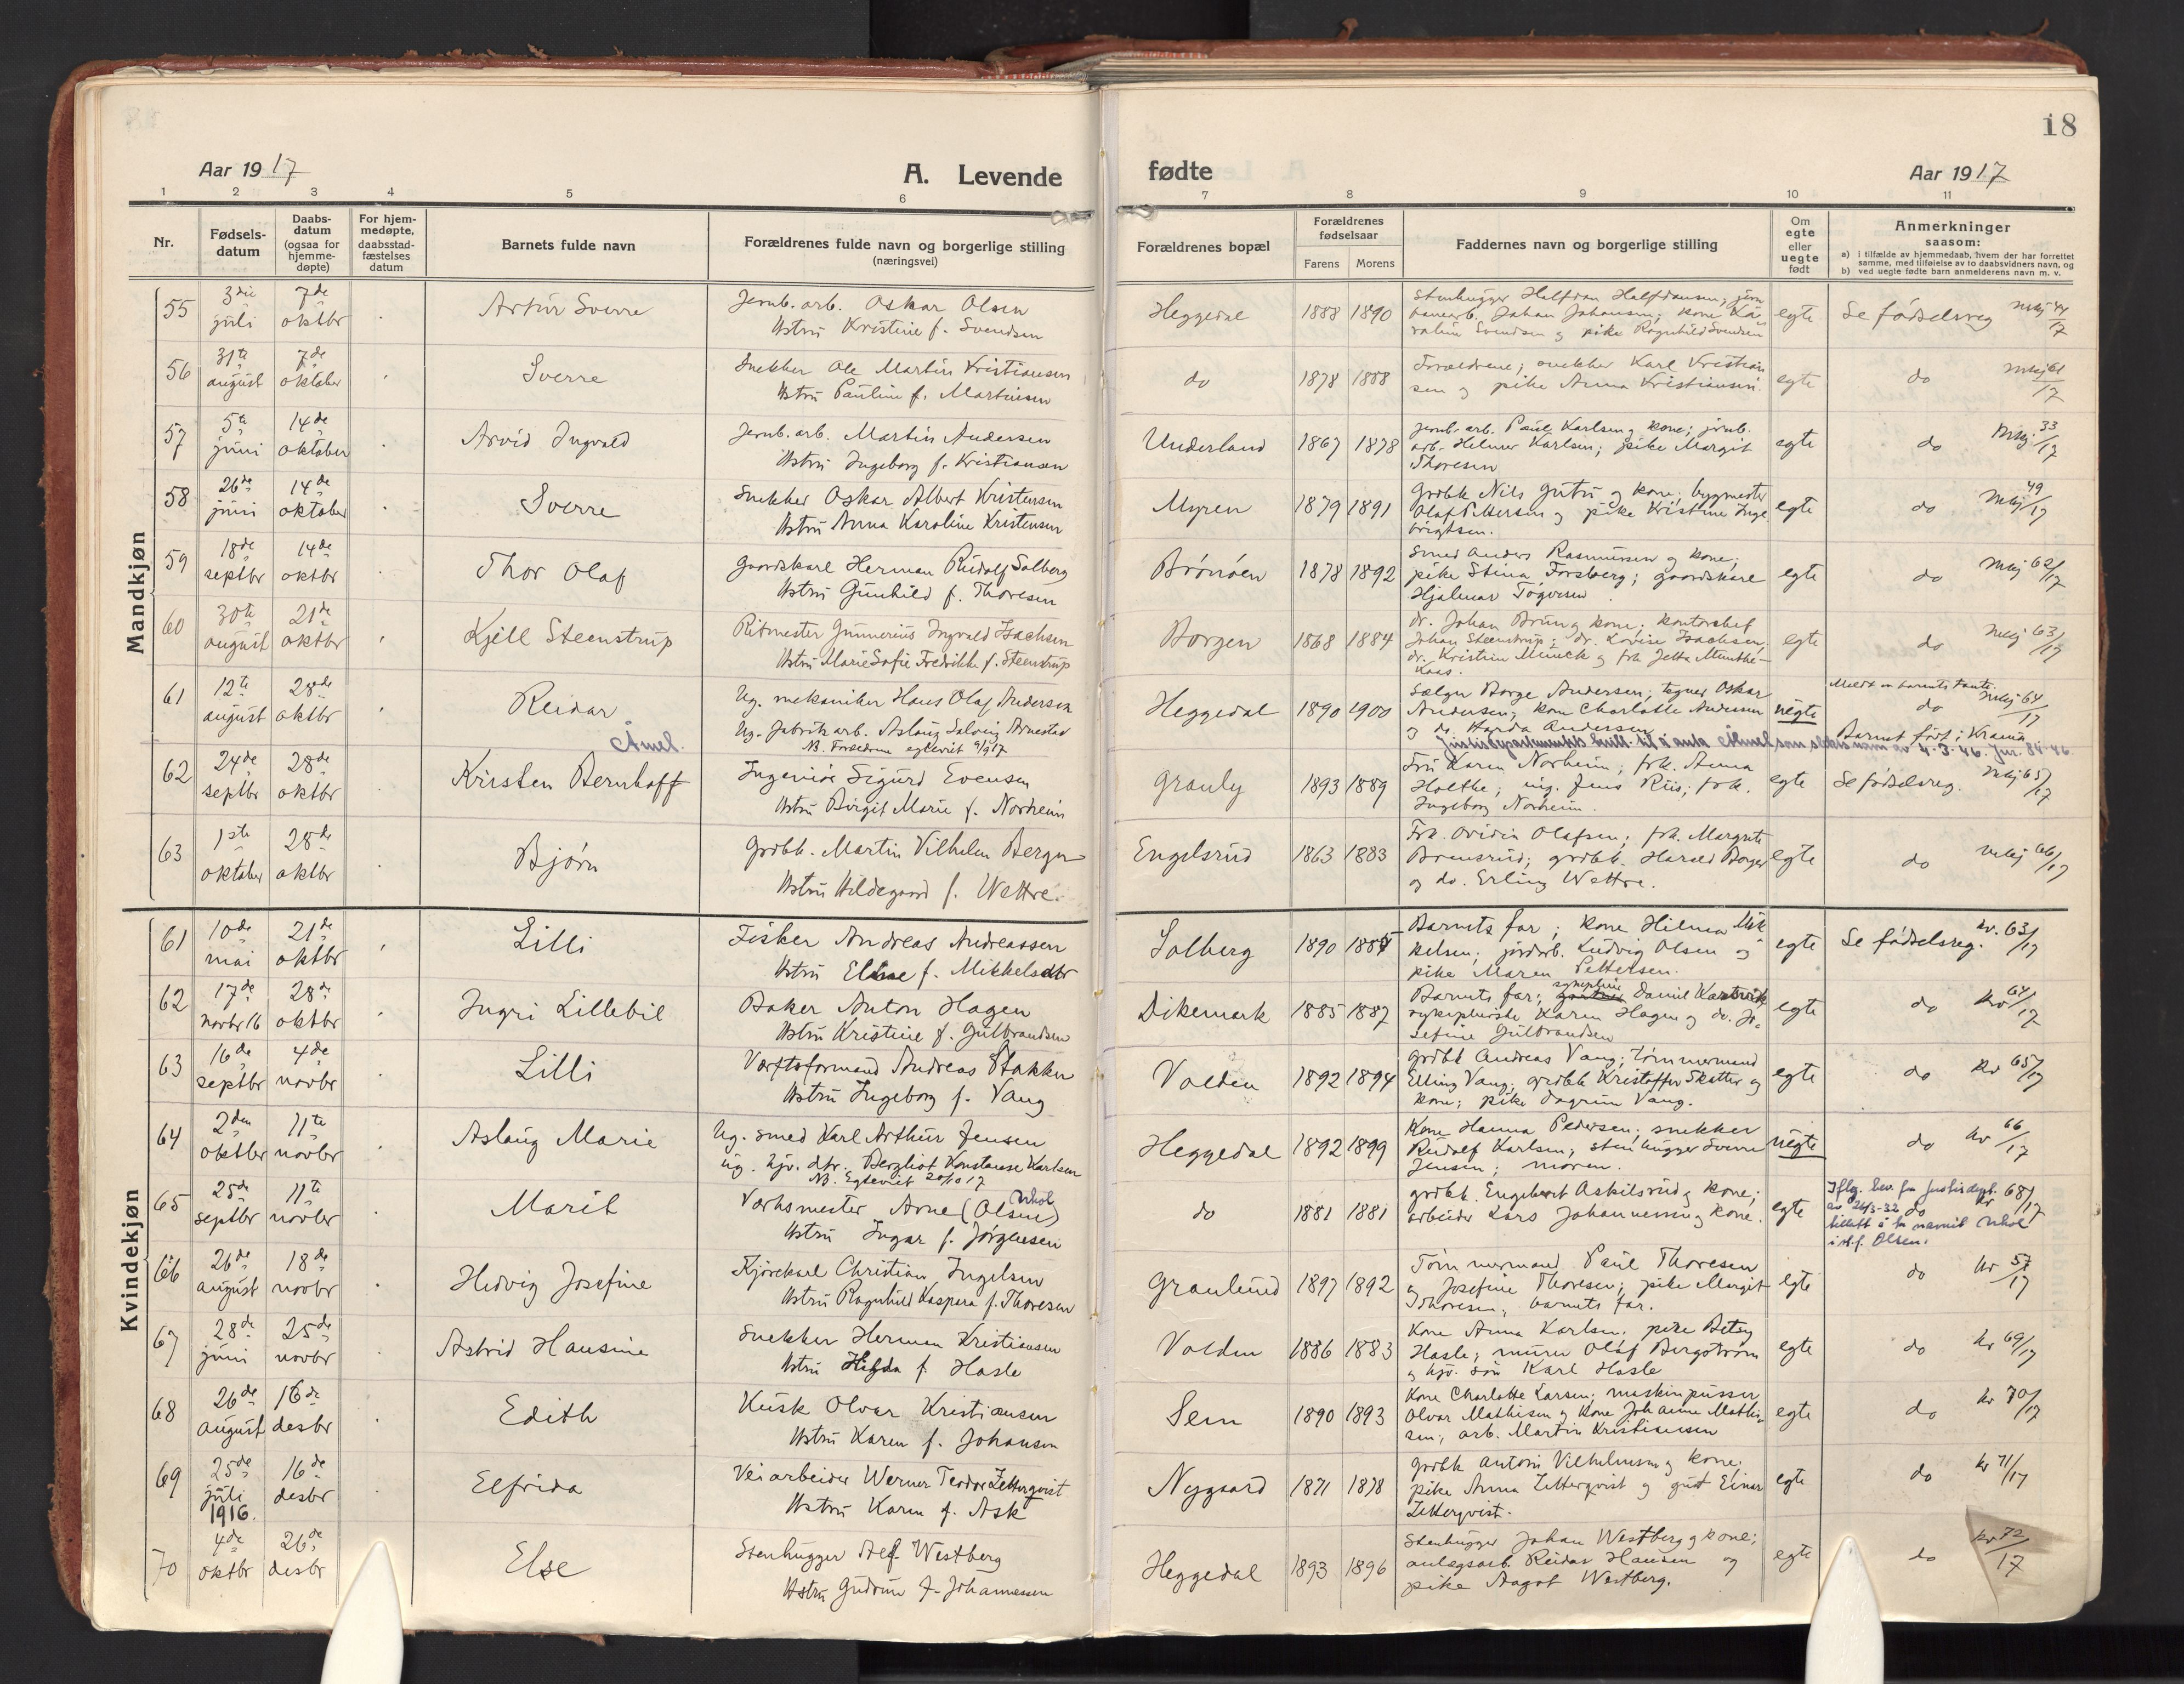 18
Aar 1917
A. Levende
fødte
Aar 1917
1 2 3 4 5 6 7 8 9 10 11
Nr.
Fødsels-
datum
Daabs-
datum
(ogsaa for
hjemme-
døpte)
For hjem-
medøpte,
daabsstad-
fæstelses
datum
Barnets fulde navn
Forældrenes fulde navn og borgerlige stilling
(næringsvei)
Forældrenes bopæl
Forældrenes
fødselsaar
Farens Morens
Faddernes navn og borgerlige stilling
Om
egte
eller
uegte
født
Anmerkninger
saasom:
a) i tilfælde av hjemmedaab, hvem der har forrettet
samme, med tilføielse av to daabsvidners navn, og
b) ved uegte fødte barn anmelderens navn m. v.
Mandkjøn
55 3die juli 7de oktbr Artur Sverre
Jernb. arb. Oskar Olsen
Hstru Kristine f. Svendsen
Heggedal 1888 1890
Stenhugger Halfdan Halfdansen, jern
banearb. Johan Johansen; kone Ka
roline Svendsen og pike Ragnhild Svendsen
egte Se fødselsreg
56 31te august 7de oktober Sverre
Snekker Ole Martin Kristiansen
Hstru Pauline f. Martinsen
do 1878 1888
Forældrene; snekker Karl Kristian
sen og pike Anna Kristiansen.
egte do 61/17
57 5te juni 14de oktober Arvid Ingvald
Jernb. arb. Martin Andersen
Hstru Ingeborg f. Kristiansen
Underland 1867 1878
Jernb. arb. Paul Karlsen og kone; jernb.
arb. Helmer Karlsen; pike Margit
Thoresen
egte do 33/17
58 26de juni 14de oktober Sverre
Snekker Oskar Albert Kristensen
Hstru Anna Karoline Kristensen
Myren 1879 1891
Grdbk Nils Gutu og kone; bygmester
Olaf Pettersen og pike Kristine Inge
brigtsen.
egte do 49/17
59 18de septbr 14de oktbr Thor Olaf
Gaardskarl Herman Rudolf Solberg
Hstru Gunhild f. Thoresen
Brønøen 1878 1892
Smed Anders Rasmussen og kone;
pike Stina Forsberg; gaardskarl
Hjalmar Togersen
egte do 62/17
60 30te august 21de oktbr Kjell Steenstrup
Ritmester Gunnerius Ingvald Isachsen
Hstru Marie Sofie Fredrikke f. Steenstrup
Borgen 1868 1884
dr. Johan Brun og kone; kontorchef
Johan Steenstrup; dr. Lovise Isachsen,
dr. Kristine Munck og frk Jetta Munthe-
Kaas.
egte do 63/17
61 12te august 28de oktbr Reidar
Åmel.
Ug. mekaniker Hans Olaf Andersen
Ug. fabrikarb. Aslaug Solveig Arnestad
NB. Forældrene egteviet 9/9 17
Heggedal 1890 1900
Sælger Borge Andersen; tegner Oskar
Andersen; kone Charlotte Andersen
og do. Harda Andersen
uegte
Meldt av barnets tante.
do 64/17
Barnet født i Krania
Justisdepartementets bevill. til å anta Åmel som slektsnavn av 4-3-46. Jnr. 84-46.
62 24de septbr 28de oktbr Kirsten Bernhoff
Ingeniør Sigurd Evensen
Hstru Birgit Marie f. Norheim
Grauly 1893 1889
Fru Karen Norheim; frk. Anna
Holthe; ing. Jens Riis; frk.
Ingeborg Norheim.
egte Se fødselsreg. 65/17
63 1ste oktober 28de oktbr Bjørn
Grdbk. Martin Vilhelm Berger
Hstru Hildegaard f. Wettre.
Engelsrud 1863 1883
Frk. Ovidia Olafsen; frk. Margrete
Brensrud; grdbk. Harald Berger
og do. Erling Wettre.
egte do 66/17
Kvindekjøn
61 10de mai 21de oktbr Lilli
Fisker Andreas Andreassen
Hstru Elise f. Mikkelsdtr
Solberg 1890 1885
Barnets far; kone Hilma Mik
kelsen; jordarb. Ludvig Olsen og
pike Maren Pettersen.
egte Se fødselsreg. kv. 63/17
62 17de novbr 16 28de oktbr Ingri Lillebil
Baker Anton Hagen
Hstru Kristine f. Gulbrandsen
Dikemark 1885 1887
Barnets far; Daniel Kartevik
sykepleierske Karen Hagen og do. Jo-
sefine Gulbrandsen
egte do kv 64/17
63 16de septbr 4de novbr Lilli
Verftsformand Andreas Stokker
Hstru Ingeborg f. Vang
Volden 1892 1894
Grdbk Andreas Vang; tømmermand
Elling Vang; grdbk Kristoffer Skotter og
kone; pike Dagrun Vang.
egte do kv 65/17
64 2den oktbr 11te novbr Aslaug Marie
Ug. smed Karl Arthur Jensen
ug. hjv. dtr. Bergliot Konstanse Karlsen
NB. Egteviet 20/10 17
Heggedal 1892 1899
Kone Hanna Pedersen; snekker
Rudolf Karlsen; stenhugger Sverre
Jensen; moren.
uegte do kv 66/17
65 25de septbr 11te novbr Marit
Verksmester Arne (Olsen)
Hstru Ingar f. Jørgensen
do 1881 1881
grdbk. Engebret Askilsrud og kone;
arbeider Lars Johannessen og kone.
egte
Iflg. bev. fra Justisdept. 68/17
av 26/3-32 do
tillatt å ta navnet
i st. f. Olsen.
66 26de august 18de novbr Hedvig Josefine
Kjørekarl Christian Ingelsen
Hstru Ragnhild Kaspara f. Thoresen
Graulund 1897 1892
Tømmermand Paul Thoresen
og Josefine Thoresen; pike Margit
Thoresen, barnets far.
egte do kv 57/17
67 28de juni 25de novbr Astrid Hansine
Snekker Herman Kristiansen
Hstru Hilda f. Hasle
Volden 1886 1883
Kone Anna Karlsen; pike Betsy
Hasle; murer Olaf Bergstrøm
og hjv. søn Karl Hasle
egte do kv 69/17
68 26de august 16de desbr Edith
Kusk Olvar Kristiansen
Hstru Karen f. Johansen
Sem 1890 1893
Kone Charlotte Larsen; maskinpusser
Olvar Mathisen og kone Johanne Mathi-
sen; arb. Martin Kristiansen
egte do kv 70/17
69 25de juli 1916. 16de desbr Elfrida
Veiarbeider Werner Teodor Zetterqvist
Hstru Karen f. Ask
Nygaard 1871 1878
grdbk Anton Vilhelmsen og kone;
pike Anna Zetterqvist og gut Einar
Zetterqvist.
egte do kv 71/17
70 4de oktbr 26de desbr Else
Stenhugger Alf Westberg
Hstru Gudrun f. Johannessen
Heggedal 1893 1896
Stenhugger Johan Westberg og kone;
anlegsarb. Reidar Hansen og
pike Aagot Westberg.
egte do kv 72/17